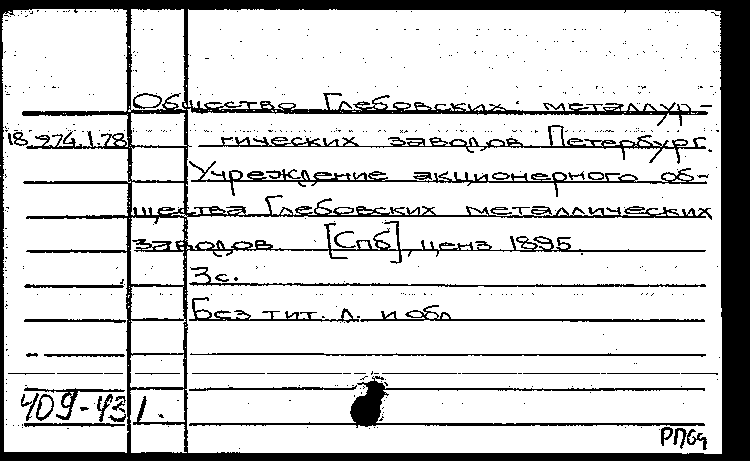 Общество Глебовских металлур-
18.274.1.78 гических заводов Петербург.
Учреждение акционерного об-
щества Глебовских металлических
заводов [Спб], ценз 1895.
3с.
Без тит. л. и обл
409-43 1.